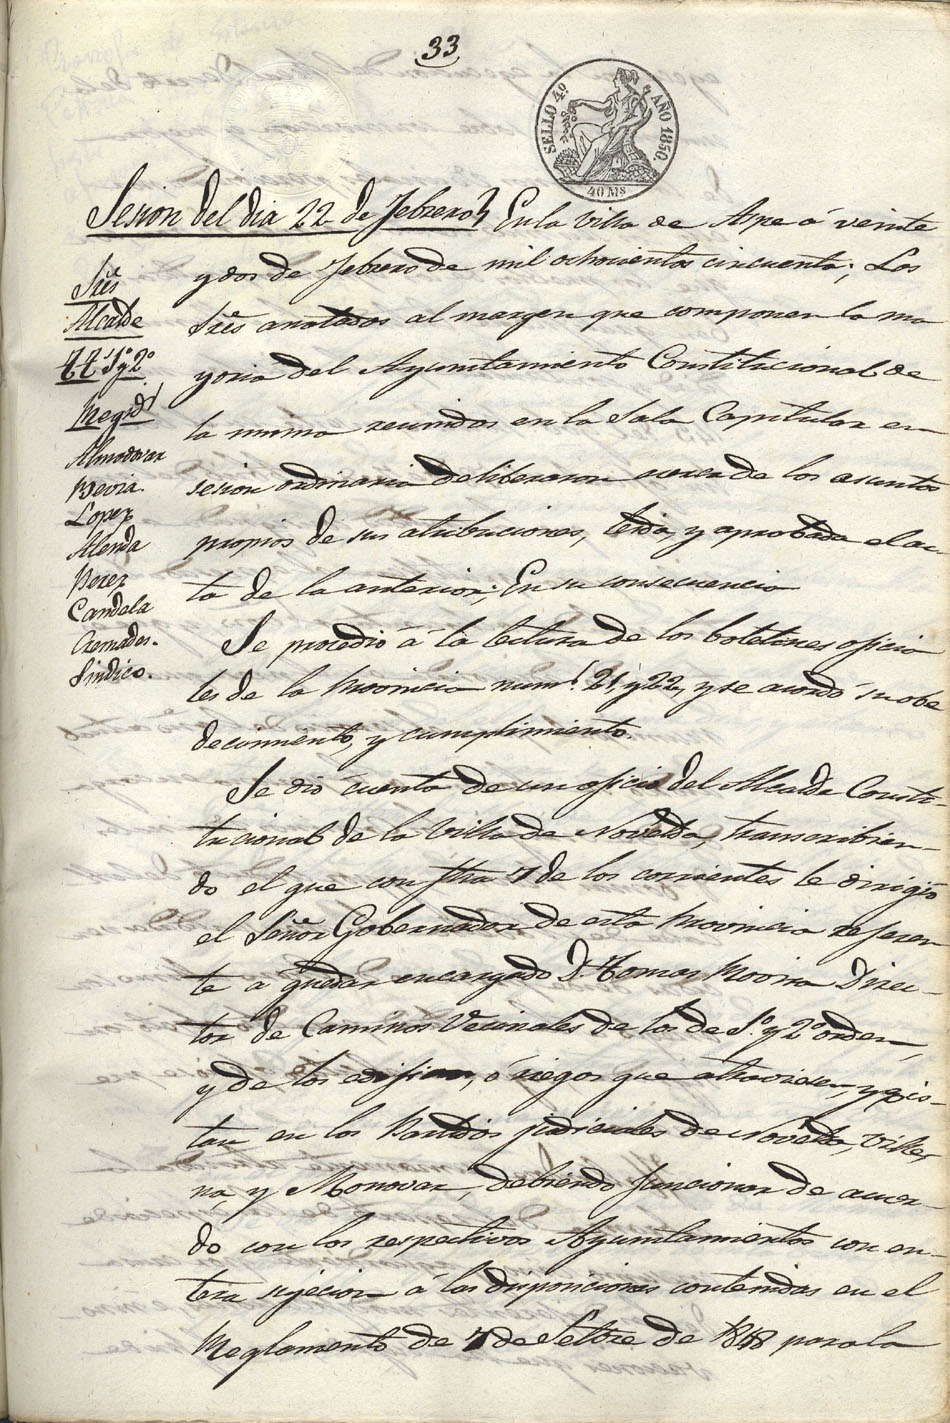 33
SELLO 4º AÑO 1850.
40 Ms
Sesion del dia 22 de Febrero
En la Villa de Aspe á veinte
y dos de Febrero de mil ochocientos cincuenta; Los
Sres anotados al margen que componen la ma
yoria del Ayuntamiento Constitucional de
la misma reunidos en la Sala Capitular en
sesion ordinaria deliberaron acerca de los asuntos
propios de sus atribuciones, leida, y aprobada el ac-
ta de la anterior; En su consecuencia
Sres
Alcalde
TT 1º y 2º
Regid
Almodovar
Devia
Lopez
Alenda
Perez
Candela
Cremades.
Sindico.
Se procedió á la lectura de los boletines oficia
les de la Provincia num.s 21, y 22, y se acordó su obe
decimiento, y cumplimiento.
Se dió cuenta de un oficio del Alcalde Consti-
tucional de la Villa de Novelda, transcribien-
do el que con fha 7 de los corrientes le dirigió
el Señor Gobernador de esta Provincia referen
te á quedar encargado D. Tomas Direc-
tor de Caminos Vecinales de los de 1º y 2º orden,
y de los, ó riegos que atraviesen, y ecsis-
tan en los Partidos judiciales de Novelda, Ville
na, y Monovar, debiendo funcionar de acuer-
do con los respectivos Ayuntamientos con en-
tera sujecion á las disposiciones contenidas en el
Reglamento de 7 de Setbre de 1848 para la